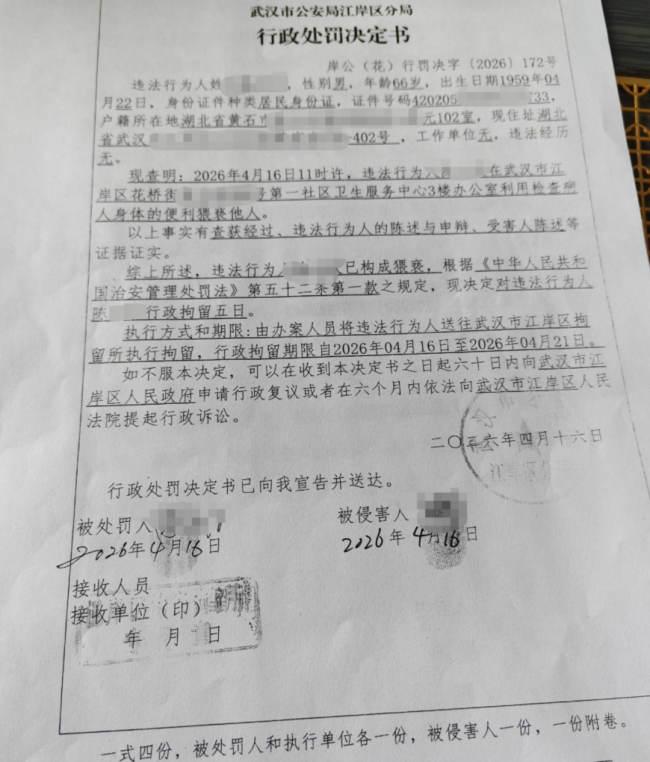 武汉市公安局江岸区分局
行政处罚决定书
岸公(花)行罚决字〔2026〕172号
违法行为人姓 ，性别男，年龄66岁，出生日期1959年04
月22日，身份证件种类居民身份证，证件号码420205 33，
户籍所在地湖北省黄石市 元102室，现住址湖北
省武汉 402号，工作单位无，违法经历
无。
现查明：2026年4月16日11时许，违法行为人 在武汉市江
岸区花桥街 号第一社区卫生服务中心3楼办公室利用检查病
人身体的便利猥亵他人。
以上事实有查获经过、违法行为人的陈述与申辩、受害人陈述等
证据证实。
综上所述，违法行为人 已构成猥亵，根据《中华人民共和
国治安管理处罚法》第五十二条第一款之规定，现决定对违法行为人
陈 行政拘留五日。
执行方式和期限：由办案人员将违法行为人送往武汉市江岸区拘
留所执行拘留，行政拘留期限自2026年04月16日至2026年04月21日。
如不服本决定，可以在收到本决定书之日起六十日内向武汉市江
岸区人民政府申请行政复议或者在六个月内依法向武汉市江岸区人民
法院提起行政诉讼。
二〇二六年四月十六日
江岸区分局
行政处罚决定书已向我宣告并送达。
被处罚人 被侵害人
2026年4月16日 2026年4月16日
接收人员
接收单位(印)
年 月 日
一式四份，被处罚人和执行单位各一份，被侵害人一份，一份附卷。